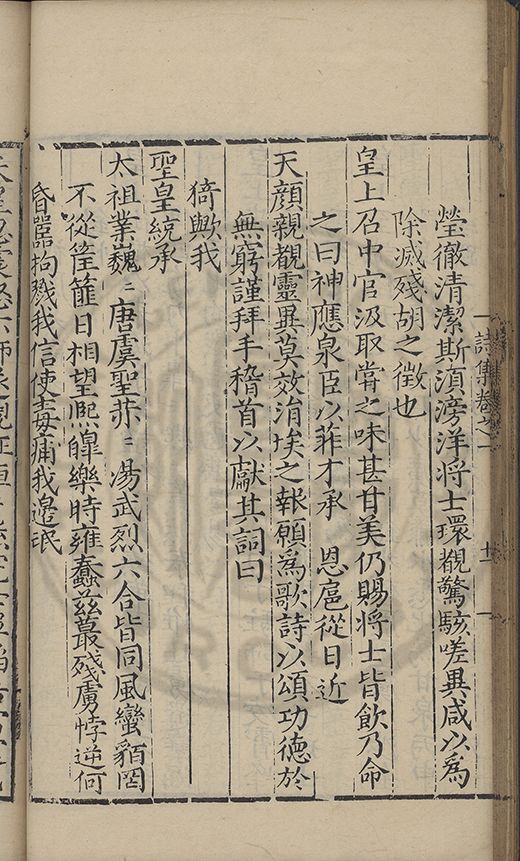 詩集卷之一
十一
瑩徹清潔斯須滂洋将士環觀驚駭嗟異咸以為
除滅殘胡之徵也
皇上召中官汲取嘗之味甚甘美仍賜將士皆飲乃命
之曰神應泉臣以菲才承 恩扈從日近
天顔親覩靈異草效涓埃之報願為歌詩以頌功德於
無窮謹拜手稽首以獻其詞曰
猗歟我
聖皇統承
太祖業巍〻唐虞聖恭〻湯武烈六合皆同風蠻貊罔
不從筐篚日相望熈皥樂時雍蠢茲蕞殘虜悖逆何
昏嚚拘戮我信使毒痡我邉氓